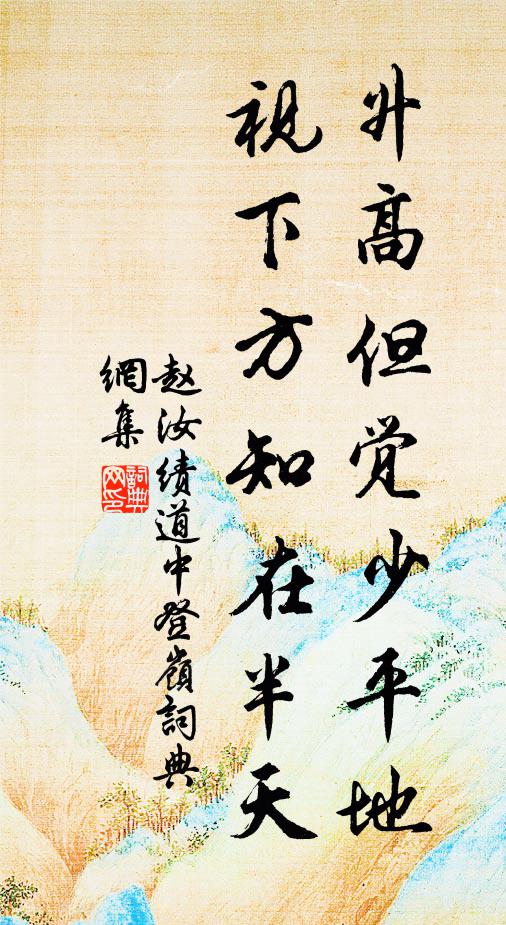 升高但觉少平地
視下方知在半天
赵汝绩道中登嶺詞典
網集
詞典
网印